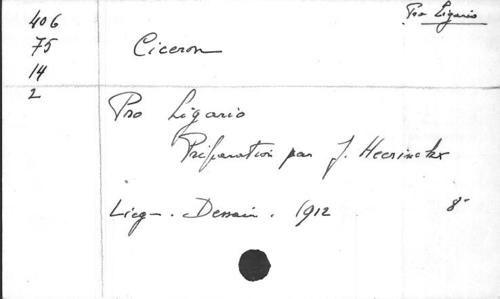 Pro Ligario
406
75
14
2
Ciceron
Pro Ligario
Préparation par J. Heerinckx
Lieg-. Dessain. 1912 8°